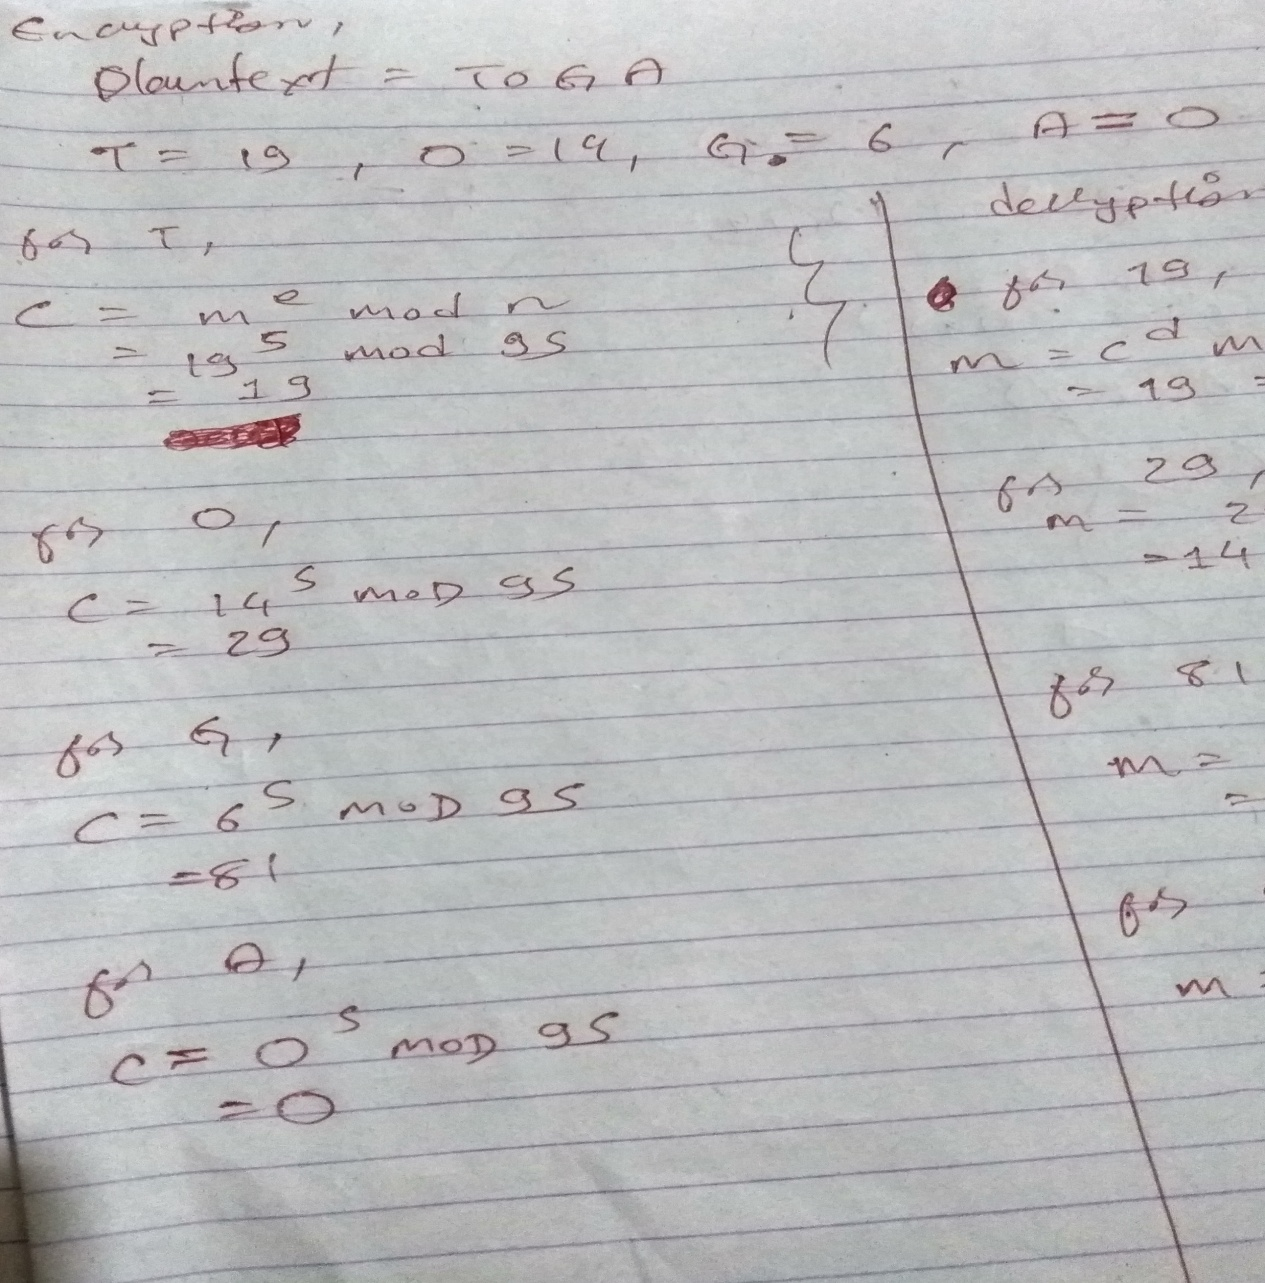 Encryption,
Plaintext = TOGA
T = 19, O = 14, G = 6, A = 0
for T,
C = m^e mod n
= 19^5 mod 95
= 19
for O,
C = 14^5 MOD 95
= 29
for G,
C = 6^5 MOD 95
= 81
for A,
C = 0^5 MOD 95
= 0
decryption
for 19,
m = c^d m
= 19 =
for 29,
m = 2
= 14
for 81
m =
=
for
m =